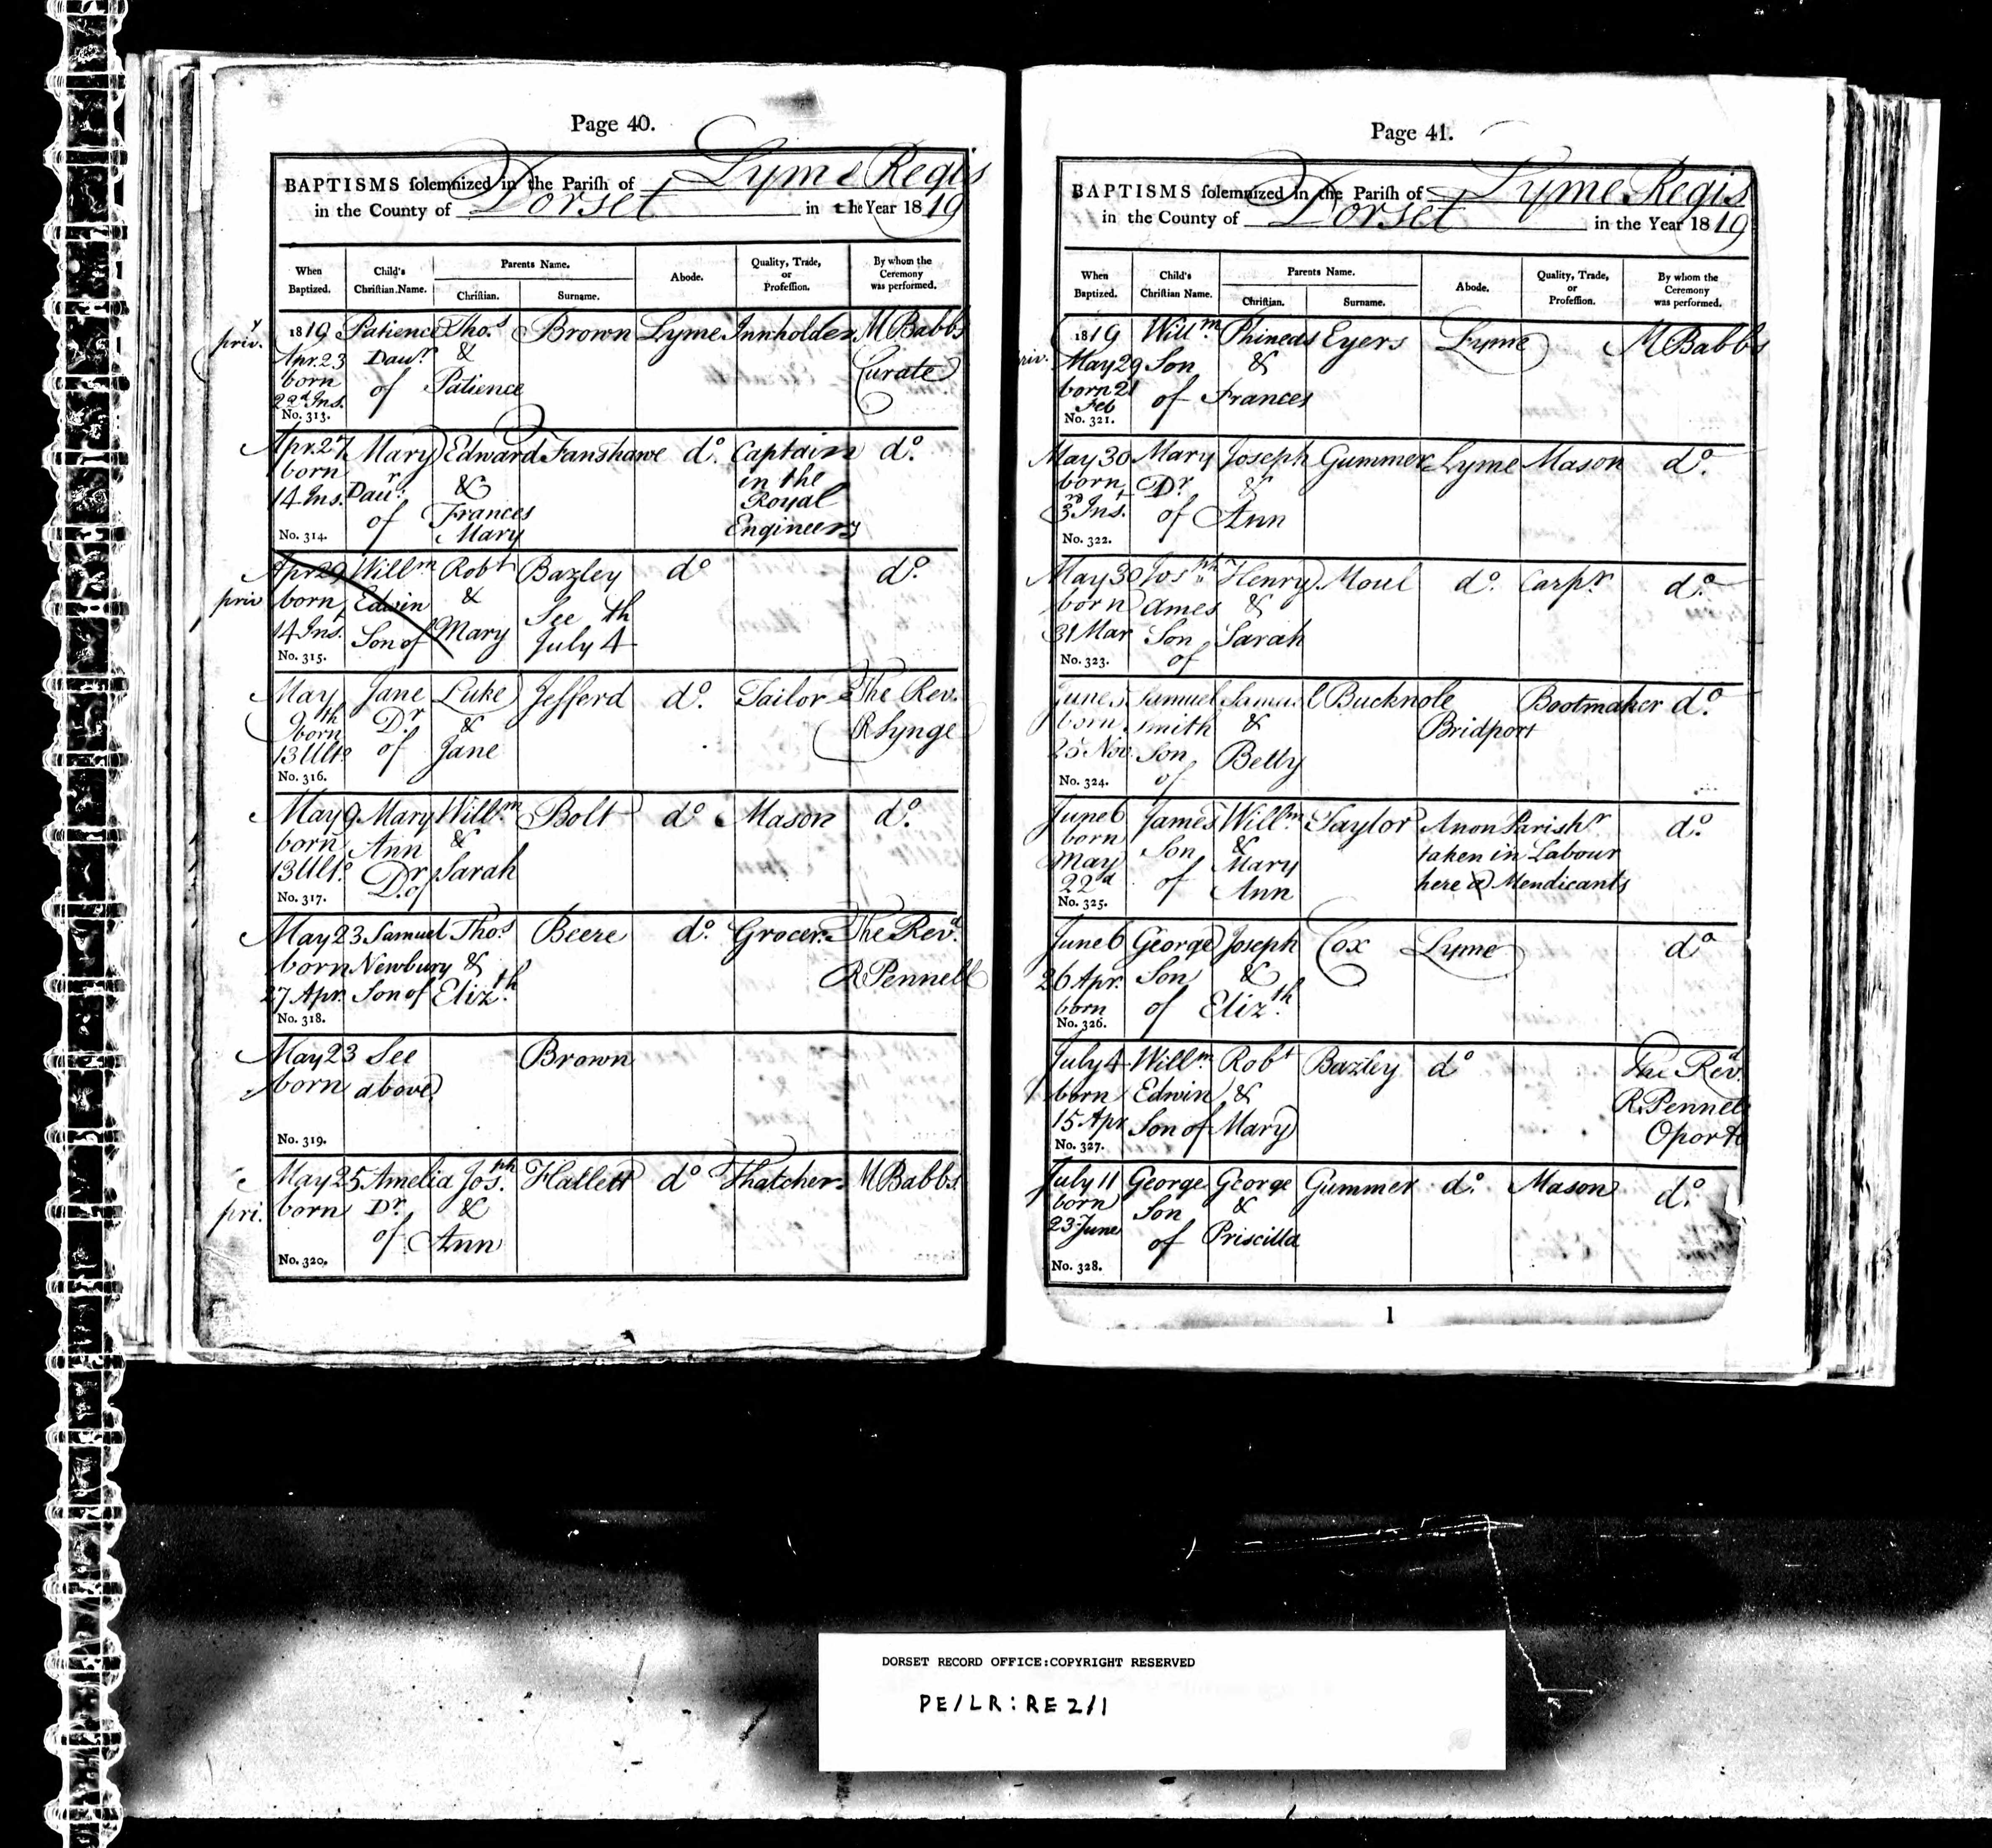 Page 40.
BAPTISMS solemnized in the Parish of Lyme Regis
in the County of Dorset in the Year 1819
When Baptized. Child's Christian Name. Parents Name. Christian. Surname. Abode. Quality, Trade, or Profession. By whom the Ceremony was performed.
priv.y 1819 Patience Thos. Brown Lyme Innholder M Babbs
Apr. 23 Daur. & Curate
born of Patience
22d Ins.
No. 313.
Apr. 27 Mary Edward Fanshawe do. Captain do.
born Daur. & in the
14 Ins. of Frances Royal
No. 314. Mary Engineers
Apr 29 Willm Robt Bazley do do.
priv born Edwin & See th
14 Ins. Son of Mary July 4
No. 315.
May Jane Luke Jefferd do. Tailor The Rev.
9th Dr & R Synge
born of Jane
13 Ulto
No. 316.
May 9 Mary Willm Bolt do Mason do.
born Ann &
13 Ulto Dr of Sarah
No. 317.
May 23 Samuel Thos. Beere do. Grocer The Revd.
born Newbury & R Pennell
27 Apr. Son of Elizth.
No. 318.
May 23 See Brown
born above
No. 319.
May 25 Amelia Josph. Hallett do Thatcher M Babbs
pri. born Dr. &
of Ann
No. 320.
Page 41.
BAPTISMS solemnized in the Parish of Lyme Regis
in the County of Dorset in the Year 1819
When Baptized. Child's Christian Name. Parents Name. Christian. Surname. Abode. Quality, Trade, or Profession. By whom the Ceremony was performed.
priv. 1819 Willm. Phineas Eyers Lyme M Babbs
May 29 Son &
born 21 of Frances
Feb
No. 321.
May 30 Mary Joseph Gummer Lyme Mason do.
born Dr &
3rd Inst. of Ann
No. 322.
May 30 Josph Henry Moul do. Carpr do.
born James &
31 Mar Son Sarah
No. 323. of
June 5 Samuel Samuel Bucknole Bootmaker do.
born Smith & Bridport
25 Nov. Son Betty
No. 324. of
June 6 James Willm Taylor A non Parishr do.
born Son & taken in Labour
May of Mary here Mendicants
22d Ann
No. 325.
June 6 George Joseph Cox Lyme do
26 Apr. Son &
born of Elizth.
No. 326.
July 4 Willm. Robt Bazley do The Revd.
born Edwin & R. Pennell
15 Apr Son of Mary Oporto
No. 327.
July 11 George George Gummer do. Mason do.
born Son &
23 June of Priscilla
No. 328.
1
DORSET RECORD OFFICE:COPYRIGHT RESERVED
PE/LR:RE 2/1